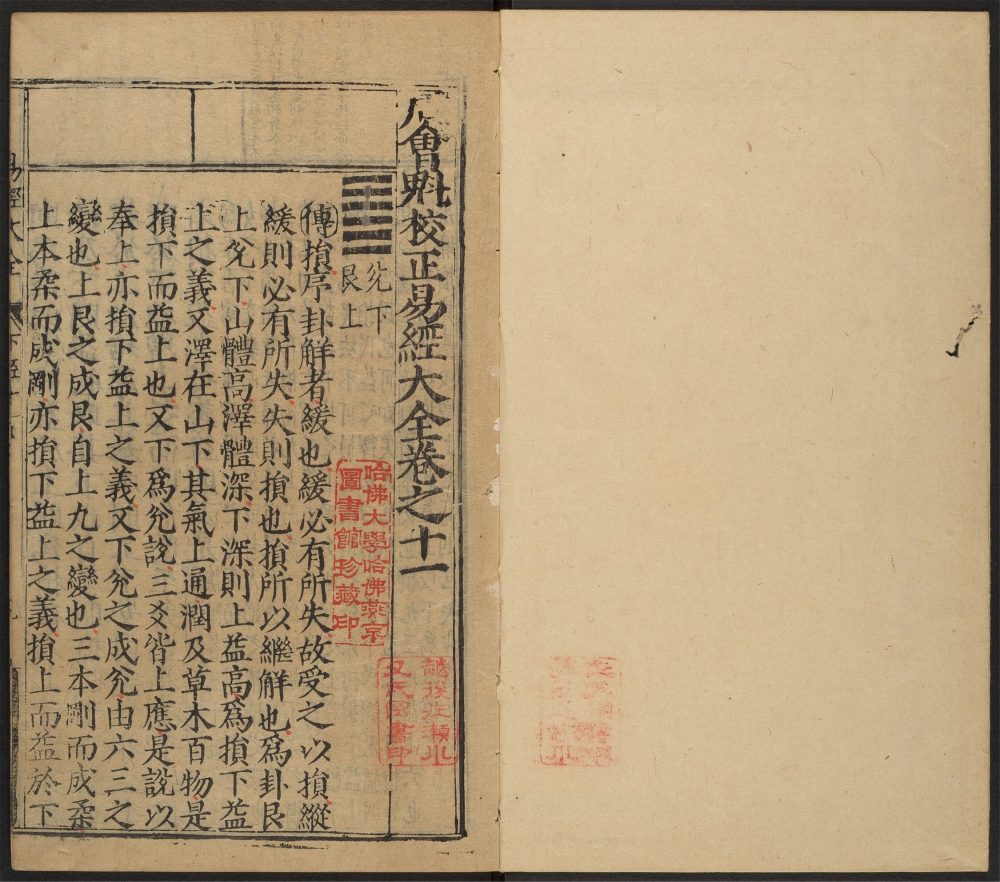 周會魁校正易經大全卷之十一
兌下
艮上
傳損序卦解者緩也緩必有所失故受之以損縱
緩則必有所失失則損也損所以繼解也爲卦艮
上兌下山體高澤體深下深則上益高爲損下益
上之義又澤在山下其氣上通潤及草木百物是
損下而益上也又下爲兌說三爻皆上應是說以
奉上亦損下益上之義又下兌之成兌由六三之
變也上艮之成艮自上九之變也三本剛而成柔
上本柔而成剛亦損下益上之義損上而益於下
易經大全 下經
哈佛大學哈佛燕京
圖書館珍藏印